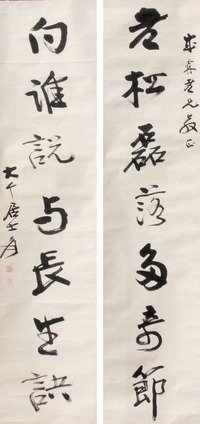 老松磊落多奇節
成宾老兄教正
向誰說与長生訣
大千居士爰